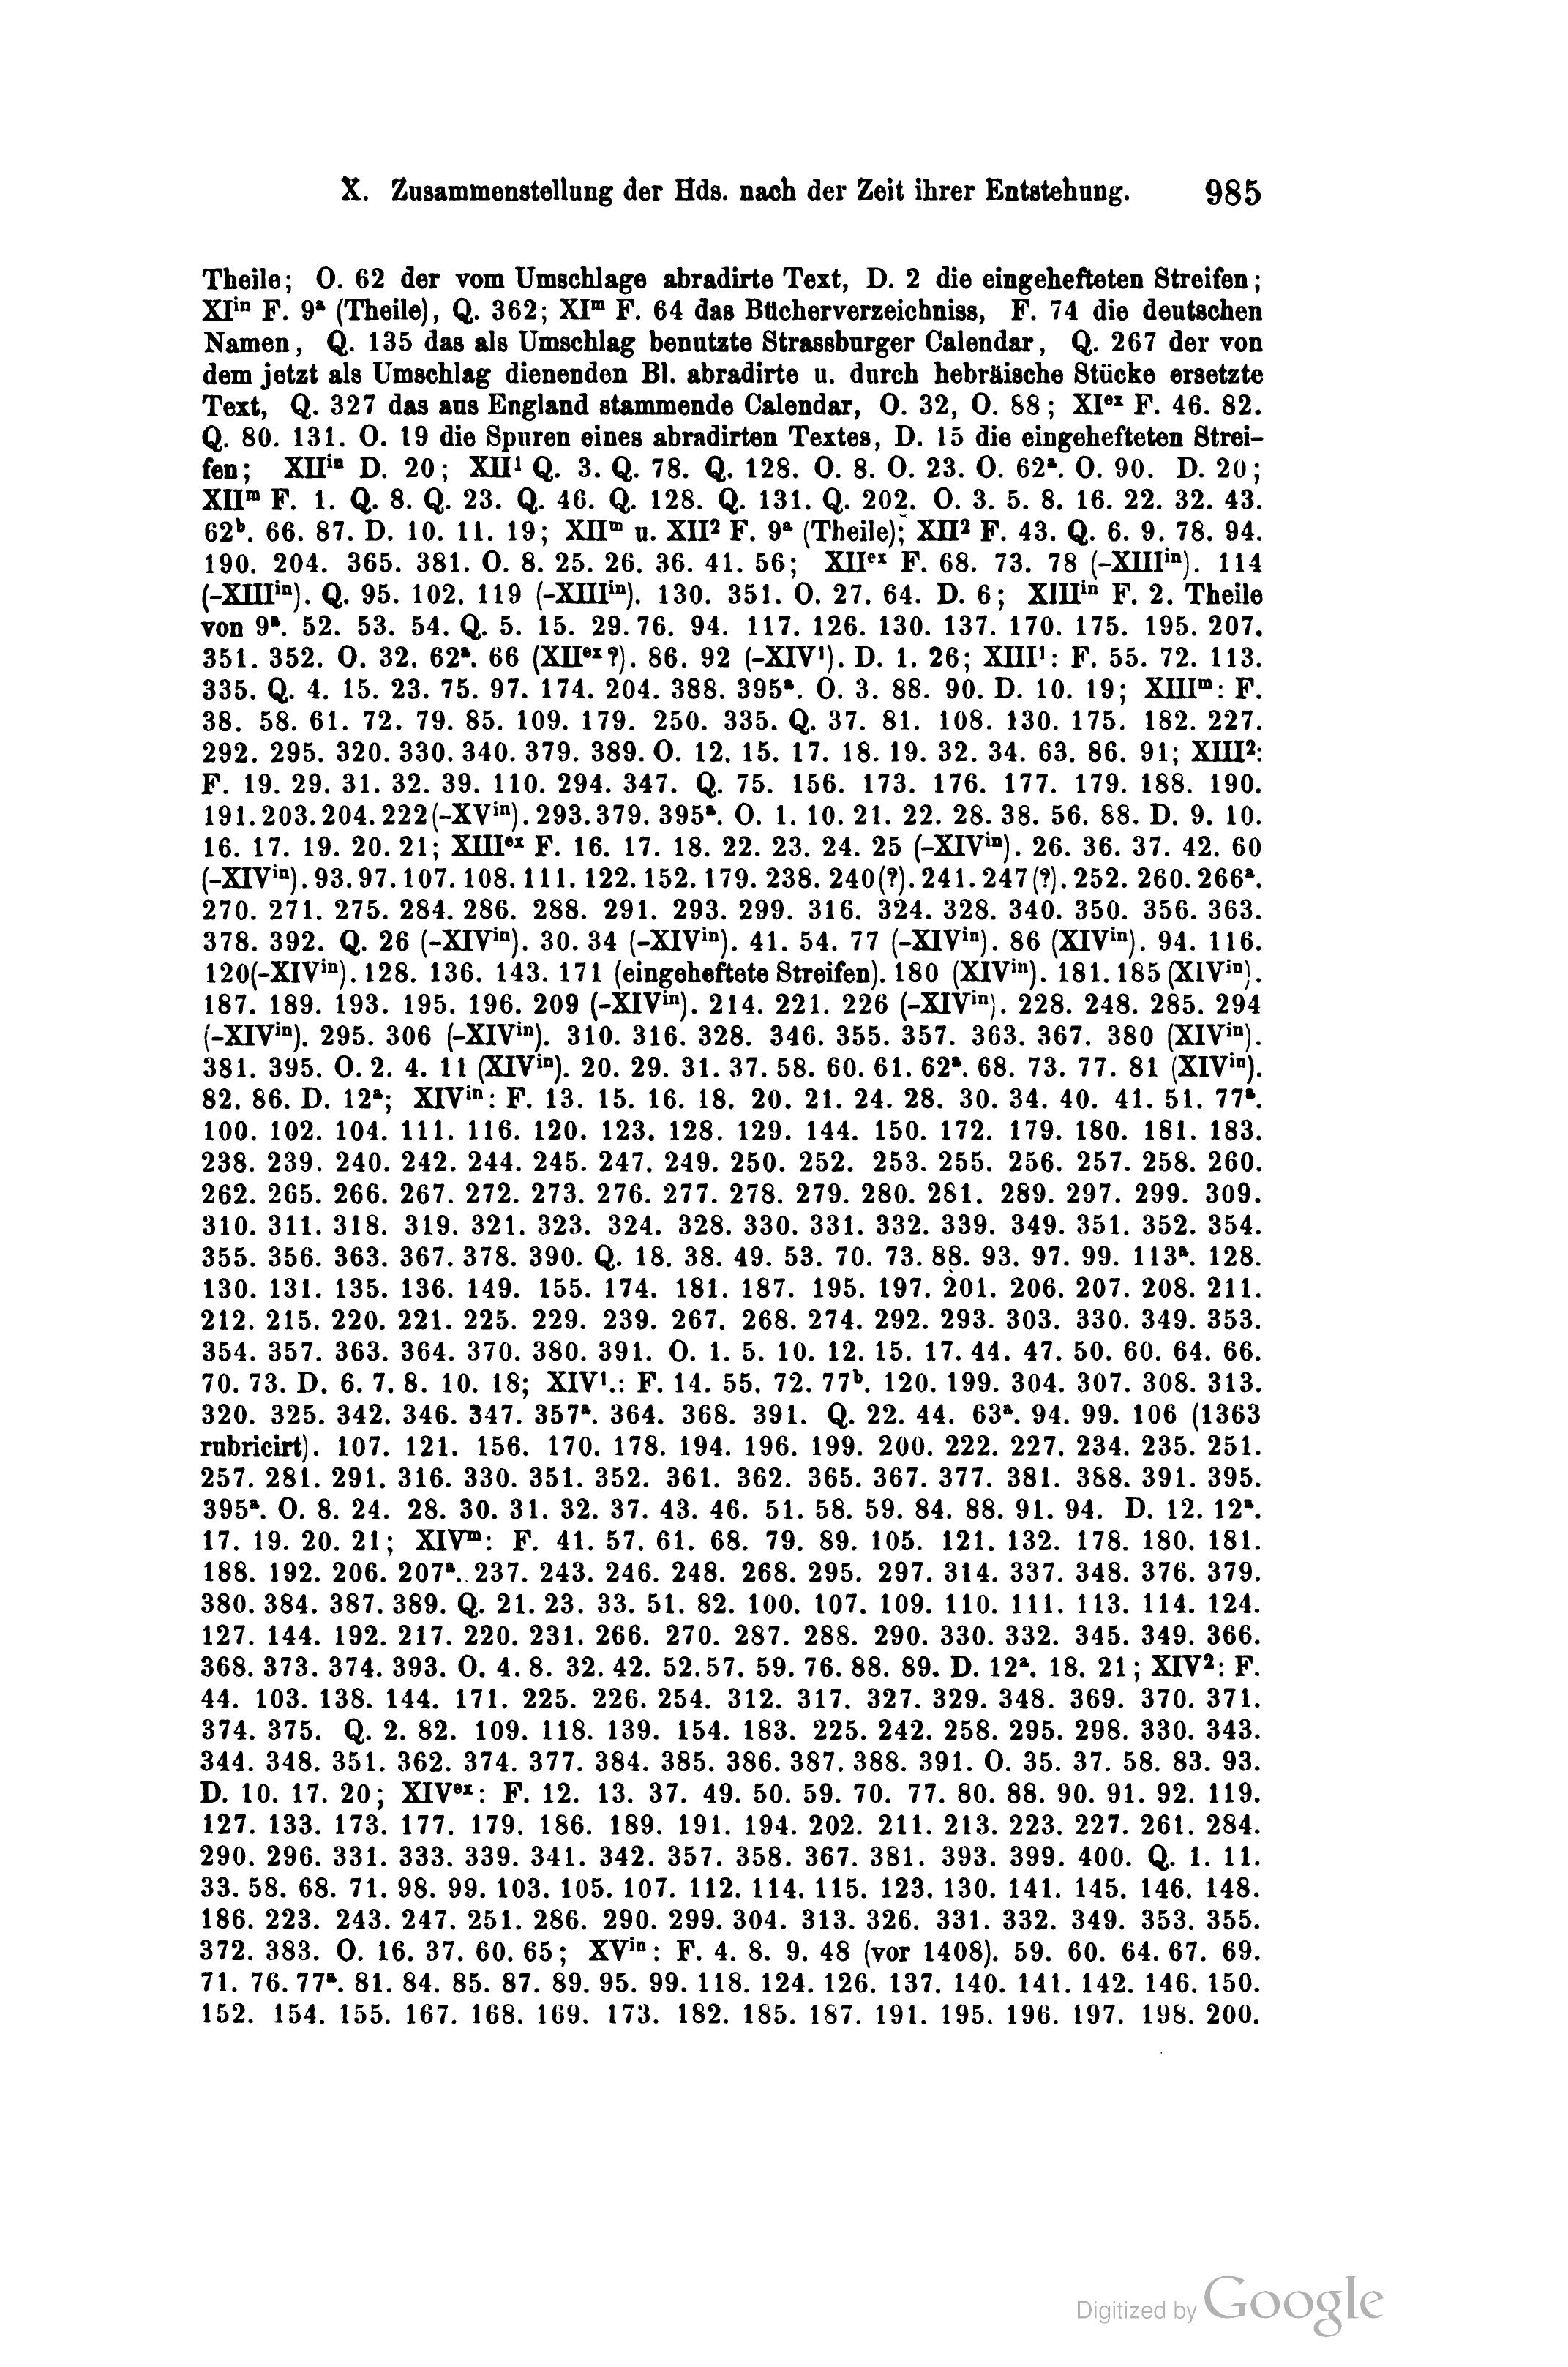 X. Zusammenstellung der Hds. nach der Zeit ihrer Entstehung. 985
Theile; O. 62 der vom Umschlage abradirte Text, D. 2 die eingehefteten Streifen;
XIⁱⁿ F. 9ᵃ (Theile), Q. 362; XIᵐ F. 64 das Bücherverzeichniss, F. 74 die deutschen
Namen, Q. 135 das als Umschlag benutzte Strassburger Calendar, Q. 267 der von
dem jetzt als Umschlag dienenden Bl. abradirte u. durch hebräische Stücke ersetzte
Text, Q. 327 das aus England stammende Calendar, O. 32, O. 88; XIᵉˣ F. 46. 82.
Q. 80. 131. O. 19 die Spuren eines abradirten Textes, D. 15 die eingehefteten Strei-
fen; XIIⁱⁿ D. 20; XII¹ Q. 3. Q. 78. Q. 128. O. 8. O. 23. O. 62ᵃ. O. 90. D. 20;
XIIᵐ F. 1. Q. 8. Q. 23. Q. 46. Q. 128. Q. 131. Q. 202. O. 3. 5. 8. 16. 22. 32. 43.
62ᵇ. 66. 87. D. 10. 11. 19; XIIᵐ u. XII² F. 9ᵃ (Theile); XII² F. 43. Q. 6. 9. 78. 94.
190. 204. 365. 381. O. 8. 25. 26. 36. 41. 56; XIIᵉˣ F. 68. 73. 78 (-XIIIⁱⁿ). 114
(-XIIIⁱⁿ). Q. 95. 102. 119 (-XIIIⁱⁿ). 130. 351. O. 27. 64. D. 6; XIIIⁱⁿ F. 2. Theile
von 9ᵃ. 52. 53. 54. Q. 5. 15. 29. 76. 94. 117. 126. 130. 137. 170. 175. 195. 207.
351. 352. O. 32. 62ᵃ. 66 (XIIᵉˣ?). 86. 92 (-XIV¹). D. 1. 26; XIII¹: F. 55. 72. 113.
335. Q. 4. 15. 23. 75. 97. 174. 204. 388. 395ᵃ. O. 3. 88. 90. D. 10. 19; XIIIᵐ: F.
38. 58. 61. 72. 79. 85. 109. 179. 250. 335. Q. 37. 81. 108. 130. 175. 182. 227.
292. 295. 320. 330. 340. 379. 389. O. 12. 15. 17. 18. 19. 32. 34. 63. 86. 91; XIII²:
F. 19. 29. 31. 32. 39. 110. 294. 347. Q. 75. 156. 173. 176. 177. 179. 188. 190.
191. 203. 204. 222 (-XVⁱⁿ). 293. 379. 395ᵃ. O. 1. 10. 21. 22. 28. 38. 56. 88. D. 9. 10.
16. 17. 19. 20. 21; XIIIᵉˣ F. 16. 17. 18. 22. 23. 24. 25 (-XIVⁱⁿ). 26. 36. 37. 42. 60
(-XIVⁱⁿ). 93. 97. 107. 108. 111. 122. 152. 179. 238. 240 (?). 241. 247 (?). 252. 260. 266ᵃ.
270. 271. 275. 284. 286. 288. 291. 293. 299. 316. 324. 328. 340. 350. 356. 363.
378. 392. Q. 26 (-XIVⁱⁿ). 30. 34 (-XIVⁱⁿ). 41. 54. 77 (-XIVⁱⁿ). 86 (XIVⁱⁿ). 94. 116.
120(-XIVⁱⁿ). 128. 136. 143. 171 (eingeheftete Streifen). 180 (XIVⁱⁿ). 181. 185 (XIVⁱⁿ).
187. 189. 193. 195. 196. 209 (-XIVⁱⁿ). 214. 221. 226 (-XIVⁱⁿ). 228. 248. 285. 294
(-XIVⁱⁿ). 295. 306 (-XIVⁱⁿ). 310. 316. 328. 346. 355. 357. 363. 367. 380 (XIVⁱⁿ).
381. 395. O. 2. 4. 11 (XIVⁱⁿ). 20. 29. 31. 37. 58. 60. 61. 62ᵃ. 68. 73. 77. 81 (XIVⁱⁿ).
82. 86. D. 12ᵃ; XIVⁱⁿ: F. 13. 15. 16. 18. 20. 21. 24. 28. 30. 34. 40. 41. 51. 77ᵃ.
100. 102. 104. 111. 116. 120. 123. 128. 129. 144. 150. 172. 179. 180. 181. 183.
238. 239. 240. 242. 244. 245. 247. 249. 250. 252. 253. 255. 256. 257. 258. 260.
262. 265. 266. 267. 272. 273. 276. 277. 278. 279. 280. 281. 289. 297. 299. 309.
310. 311. 318. 319. 321. 323. 324. 328. 330. 331. 332. 339. 349. 351. 352. 354.
355. 356. 363. 367. 378. 390. Q. 18. 38. 49. 53. 70. 73. 88. 93. 97. 99. 113ᵃ. 128.
130. 131. 135. 136. 149. 155. 174. 181. 187. 195. 197. 201. 206. 207. 208. 211.
212. 215. 220. 221. 225. 229. 239. 267. 268. 274. 292. 293. 303. 330. 349. 353.
354. 357. 363. 364. 370. 380. 391. O. 1. 5. 10. 12. 15. 17. 44. 47. 50. 60. 64. 66.
70. 73. D. 6. 7. 8. 10. 18; XIV¹.: F. 14. 55. 72. 77ᵇ. 120. 199. 304. 307. 308. 313.
320. 325. 342. 346. 347. 357ᵃ. 364. 368. 391. Q. 22. 44. 63ᵃ. 94. 99. 106 (1363
rubricirt). 107. 121. 156. 170. 178. 194. 196. 199. 200. 222. 227. 234. 235. 251.
257. 281. 291. 316. 330. 351. 352. 361. 362. 365. 367. 377. 381. 388. 391. 395.
395ᵃ. O. 8. 24. 28. 30. 31. 32. 37. 43. 46. 51. 58. 59. 84. 88. 91. 94. D. 12. 12ᵃ.
17. 19. 20. 21; XIVᵐ: F. 41. 57. 61. 68. 79. 89. 105. 121. 132. 178. 180. 181.
188. 192. 206. 207ᵃ. 237. 243. 246. 248. 268. 295. 297. 314. 337. 348. 376. 379.
380. 384. 387. 389. Q. 21. 23. 33. 51. 82. 100. 107. 109. 110. 111. 113. 114. 124.
127. 144. 192. 217. 220. 231. 266. 270. 287. 288. 290. 330. 332. 345. 349. 366.
368. 373. 374. 393. O. 4. 8. 32. 42. 52. 57. 59. 76. 88. 89. D. 12ᵃ. 18. 21; XIV²: F.
44. 103. 138. 144. 171. 225. 226. 254. 312. 317. 327. 329. 348. 369. 370. 371.
374. 375. Q. 2. 82. 109. 118. 139. 154. 183. 225. 242. 258. 295. 298. 330. 343.
344. 348. 351. 362. 374. 377. 384. 385. 386. 387. 388. 391. O. 35. 37. 58. 83. 93.
D. 10. 17. 20; XIVᵉˣ: F. 12. 13. 37. 49. 50. 59. 70. 77. 80. 88. 90. 91. 92. 119.
127. 133. 173. 177. 179. 186. 189. 191. 194. 202. 211. 213. 223. 227. 261. 284.
290. 296. 331. 333. 339. 341. 342. 357. 358. 367. 381. 393. 399. 400. Q. 1. 11.
33. 58. 68. 71. 98. 99. 103. 105. 107. 112. 114. 115. 123. 130. 141. 145. 146. 148.
186. 223. 243. 247. 251. 286. 290. 299. 304. 313. 326. 331. 332. 349. 353. 355.
372. 383. O. 16. 37. 60. 65; XVⁱⁿ: F. 4. 8. 9. 48 (vor 1408). 59. 60. 64. 67. 69.
71. 76. 77ᵃ. 81. 84. 85. 87. 89. 95. 99. 118. 124. 126. 137. 140. 141. 142. 146. 150.
152. 154. 155. 167. 168. 169. 173. 182. 185. 187. 191. 195. 196. 197. 198. 200.
Digitized by Google